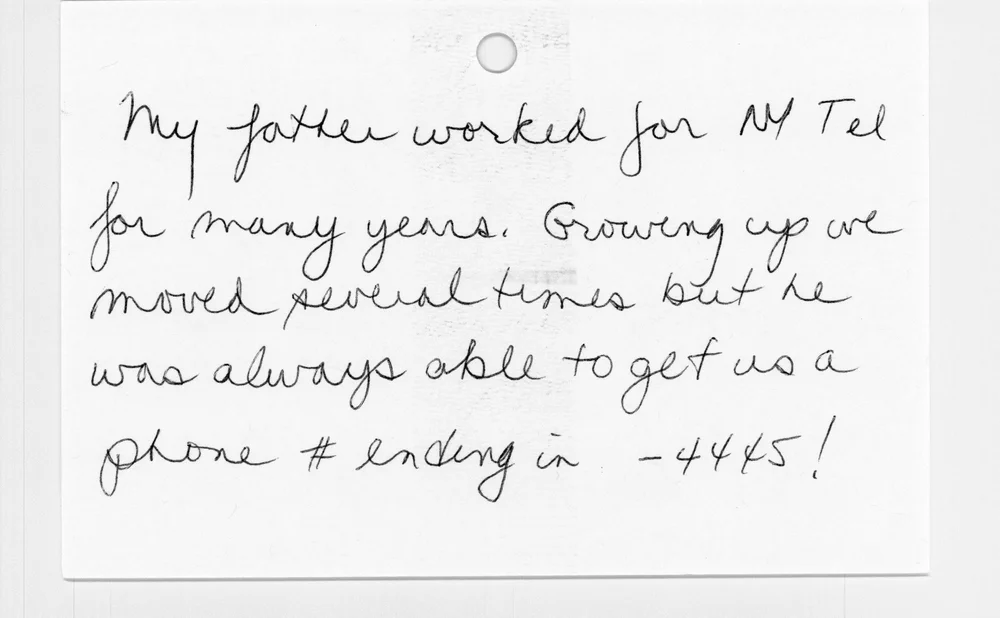 My father worked for NY Tel
for many years. Growing up we
moved several times but he
was always able to get us a
phone # ending in -4445!